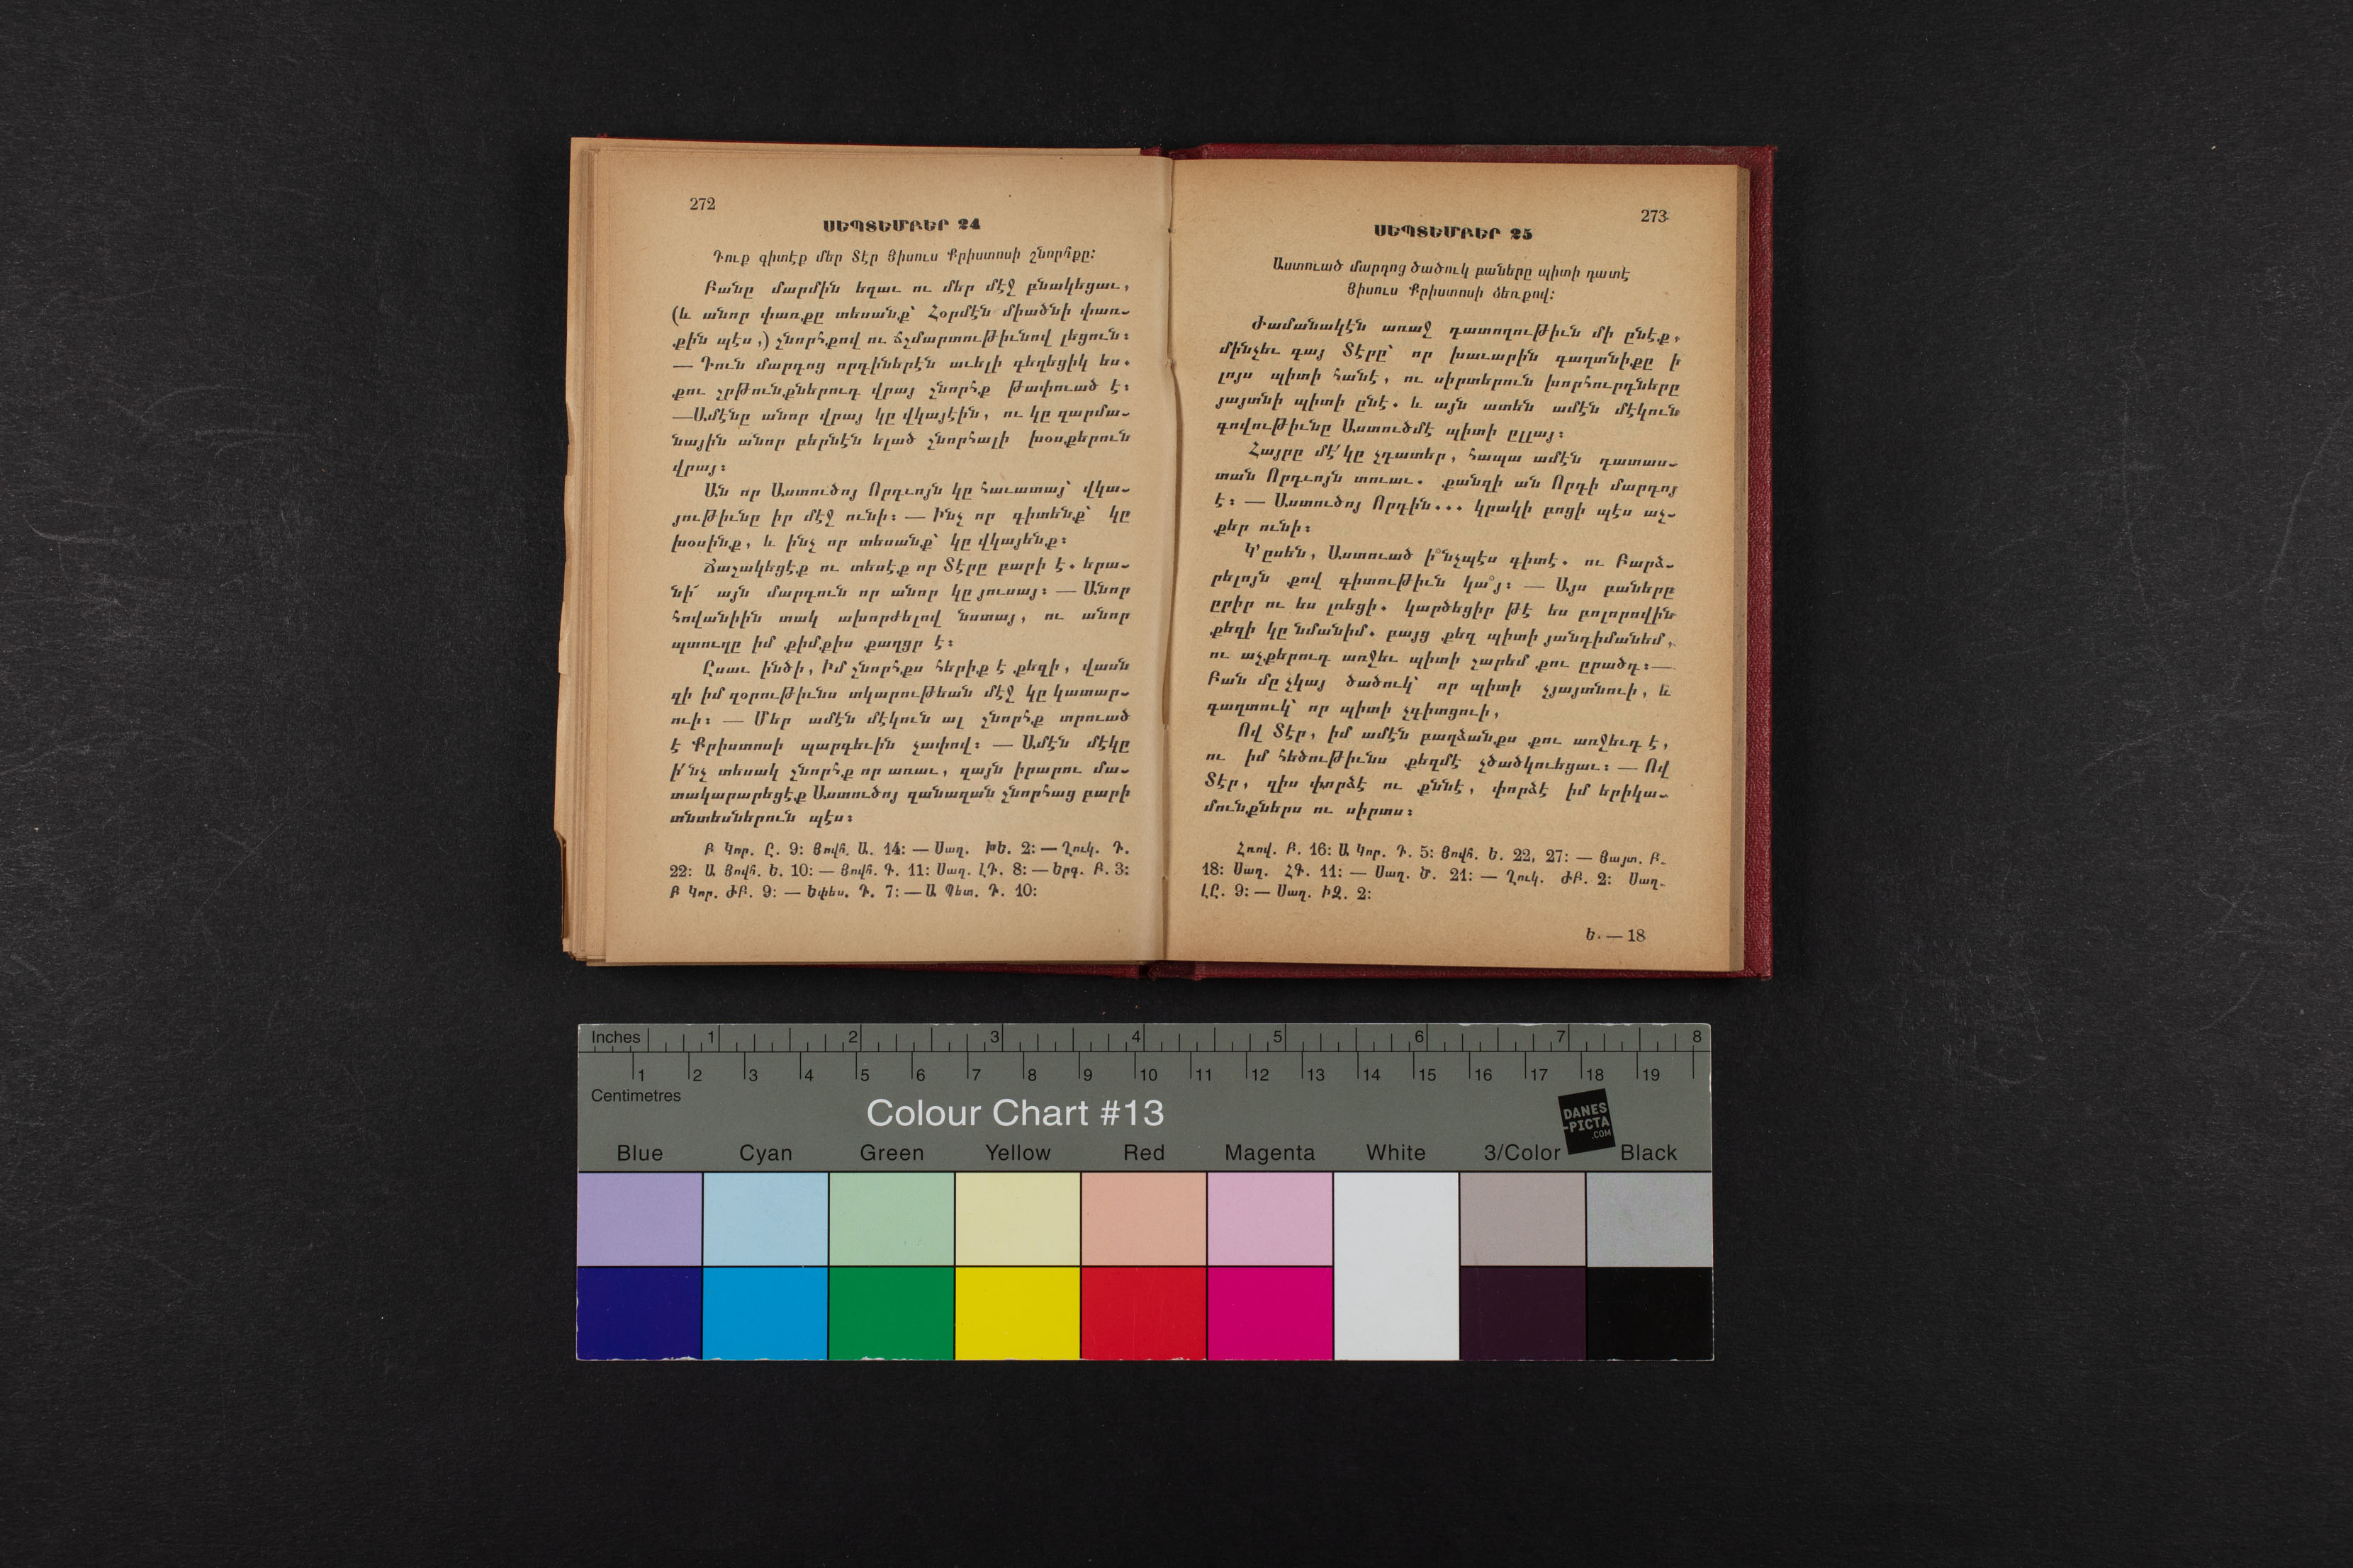 272
ՍԵՊՏԵՄԲԵՐ 24
Դուք գիտէք մեր Տէր Յիսուս Քրիստոսի շնորհքը։
Բանը մարմին եղաւ ու մեր մէջ բնակեցաւ,
(և անոր փառքը տեսանք՝ Հօրմէն միածնի փառ-
քին պէս,) շնորհքով ու ճշմարտութիւնով լեցուն։
— Դուն մարդոց որդիներէն աւելի գեղեցիկ ես.
քու շրթունքներուդ վրայ շնորհք թափուած է։
—Ամէնը անոր վրայ կը վկայէին, ու կը զարմա-
նային անոր բերնէն ելած շնորհալի խօսքերուն
վրայ։
Ան որ Աստուծոյ Որդւոյն կը հաւատայ՝ վկա-
յութիւնը իր մէջ ունի։ — Ինչ որ գիտենք՝ կը
խօսինք, և ինչ որ տեսանք՝ կը վկայենք։
Ճաշակեցէք ու տեսէք որ Տէրը բարի է. երա-
նի՜ այն մարդուն որ անոր կը յուսայ։ — Անոր
հովանիին տակ ախորժելով նստայ, ու անոր
պտուղը իմ քիմքիս քաղցր է։
Ըսաւ ինծի, Իմ շնորհքս հերիք է քեզի, վասն
զի իմ զօրութիւնս տկարութեան մէջ կը կատար-
ուի։ — Մեր ամէն մէկուն ալ շնորհք տրուած
է Քրիստոսի պարգեւին չափով։ — Ամէն մէկը
ի՛նչ տեսակ շնորհք որ առաւ, զայն իրարու մա-
տակարարեցէք Աստուծոյ զանազան շնորհաց բարի
տնտեսներուն պէս։
Բ Կոր. Ը. 9։ Յովհ. Ա. 14։ — Սաղ. ԽԵ. 2։ — Ղուկ. Դ.
22։ Ա Յովհ. Ե. 10։ — Յովհ. Գ. 11։ Սաղ. ԼԴ. 8։ — Երգ. Բ. 3։
Բ Կոր. ԺԲ. 9։ — Եփես. Դ. 7։ — Ա Պետ. Դ. 10։
273
ՍԵՊՏԵՄԲԵՐ 25
Աստուած մարդոց ծածուկ բաները պիտի դատէ
Յիսուս Քրիստոսի ձեռքով։
Ժամանակէն առաջ դատողութիւն մի ընէք,
մինչեւ գայ Տէրը՝ որ խաւարին գաղտնիքը ի
լոյս պիտի հանէ, ու սիրտերուն խորհուրդները
յայտնի պիտի ընէ. և այն ատեն ամէն մէկուն
գովութիւնը Աստուծմէ պիտի ըլլայ։
Հայրը մէ՛կը չդատեր, հապա ամէն դատաս-
տան Որդւոյն տուաւ. քանզի ան Որդի մարդոյ
է։ — Աստուծոյ Որդին... կրակի բոցի պէս աչ-
քեր ունի։
Կ՚ըսեն, Աստուած ի՞նչպէս գիտէ. ու Բարձ-
րելոյն քով գիտութիւն կա՞յ։ — Այս բաները
ըրիր ու ես լռեցի. կարծեցիր թէ ես բոլորովին
քեզի կը նմանիմ. բայց քեզ պիտի յանդիմանեմ,
ու աչքերուդ առջեւ պիտի շարեմ քու ըրածդ։—
Բան մը չկայ ծածուկ՝ որ պիտի չյայտնուի, և
գաղտուկ՝ որ պիտի չգիտցուի,
Ով Տէր, իմ ամէն բաղձանքս քու առջեւդ է,
ու իմ հեծութիւնս քեզմէ չծածկուեցաւ։ — Ով
Տէր, զիս փորձէ ու քննէ, փորձէ իմ երիկա-
մունքներս ու սիրտս։
Հռով. Բ. 16։ Ա Կոր. Դ. 5։ Յովհ. Ե. 22, 27։ — Յայտ. Բ.
18։ Սաղ. ՀԳ. 11։ — Սաղ. Ծ. 21։ — Ղուկ. ԺԲ. 2։ Սաղ.
ԼԸ. 9։ — Սաղ. ԻԶ. 2։
Ե. — 18
Inches 1 2 3 4 5 6 7 8
1 2 3 4 5 6 7 8 9 10 11 12 13 14 15 16 17 18 19
Centimetres
Colour Chart #13
DANES
-PICTA
.COM
Blue Cyan Green Yellow Red Magenta White 3/Color Black